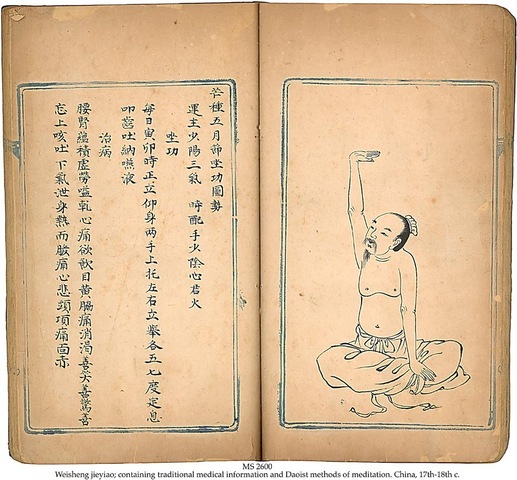 芒種五月節坐功圖勢
運主少陽三氣 時配手少陰心君火
坐功
每日寅卯時正立仰身两手上托左右立舉各五七度定息
叩齒吐納嚥液
治病
腰腎蘊積虛勞嗌乾心痛欲飲目黄脇痛消渴善笑善驚善
忘上咳吐下氣泄身熱而股痛心悲頭項痛面赤
MS 2600
Weisheng jieyiao; containing traditional medical information and Daoist methods of meditation. China, 17th-18th c.